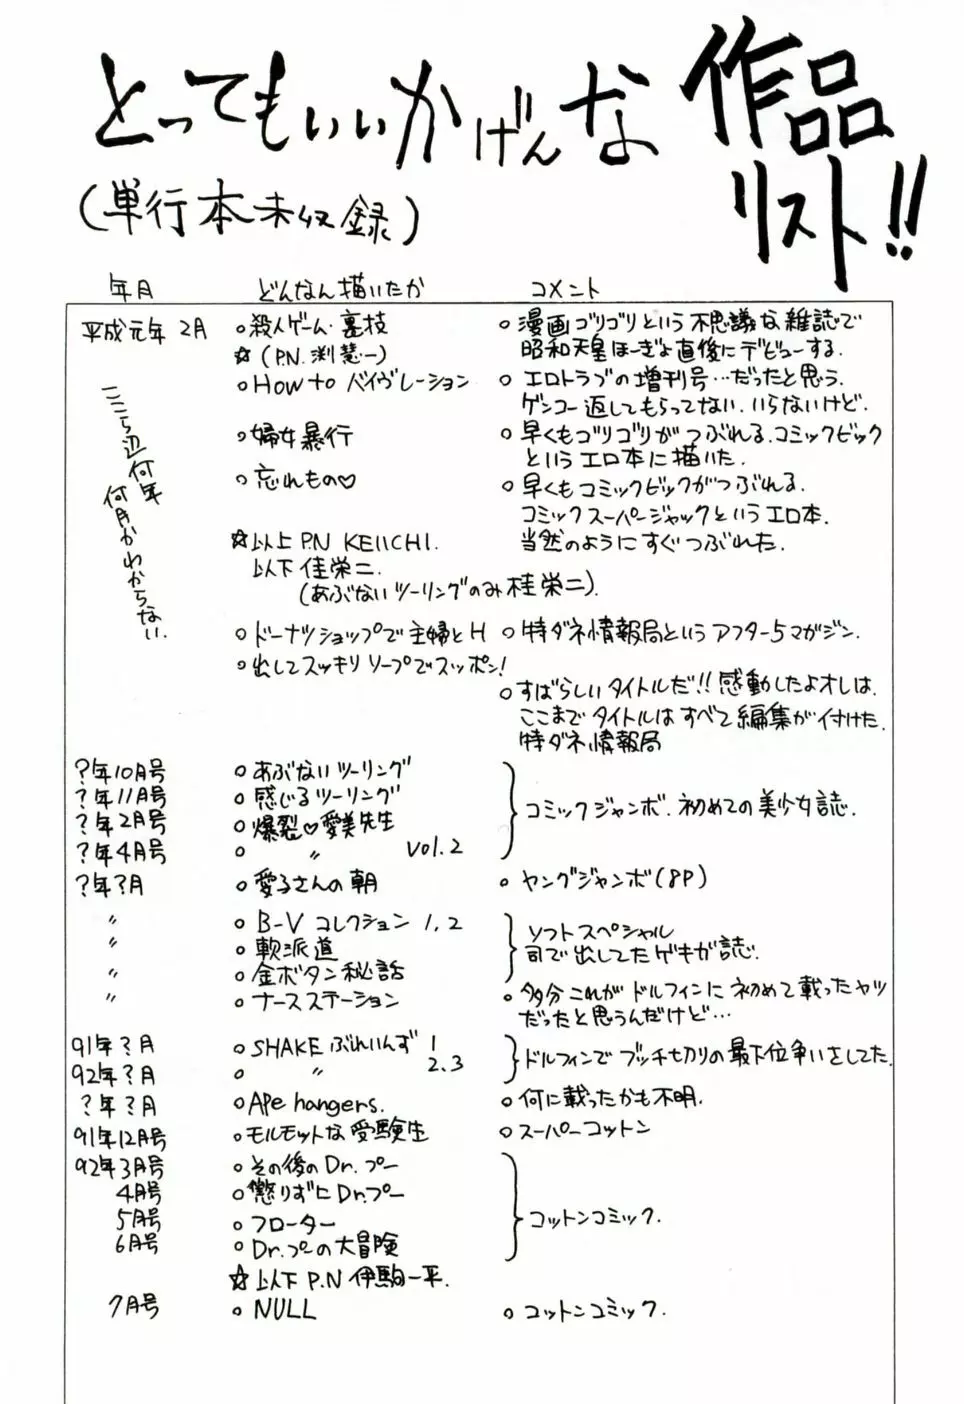 とってもいいかげんな作品リスト!!
(単行本未収録)
年月 どんなん描いたか コメント
平成元年 2月 ○殺人ゲーム・裏技 ○漫画ゴリゴリという不思議な雑誌で
☆(P.N. 渕慧一) 昭和天皇ほーぎょ直後にデビューする.
ここら辺何年何月かわからない.
○How to バイヴレーション ○エロトラブの増刊号…だったと思う.
ゲンコー返してもらってない.いらないけど.
○婦女暴行 ○早くもゴリゴリがつぶれる.コミックビック
というエロ本に描いた.
○忘れもの♡ ○早くもコミックビックがつぶれる.
コミックスーパージャックというエロ本.
☆以上 P.N KEIICHI. 当然のようにすぐつぶれた.
以下 佳栄二.
(あぶないツーリングのみ桂栄二).
○ドーナツショップで主婦とH ○特ダネ情報局というアフター5マガジン.
○出してスッキリソープでスッポン!
○すばらしいタイトルだ!!感動したよオレは.
ここまでタイトルはすべて編集が付けた.
特ダネ情報局
?年10月号 ○あぶないツーリング
?年11月号 ○感じるツーリング
コミックジャンボ.初めての美少女誌.
?年2月号 ○爆裂♡愛美先生
?年4月号 ○ 〃 vol.2
?年?月 ○愛子さんの朝 ○ヤングジャンボ(8P)
〃 ○B-Vコレクション 1,2
ソフトスペシャル
〃 ○軟派道
司で出してたゲキガ誌.
〃 ○金ボタン秘話
〃 ○ナースステーション ○多分これがドルフィンに初めて載ったヤツ
だったと思うんだけど…
91年?月 ○SHAKEぶれいんず 1
ドルフィンでブッチ切りの最下位争いをしてた.
92年?月 ○ 〃 2.3
?年?月 ○Ape hangers. ○何に載ったかも不明.
91年12月号 ○モルモットな受験生 ○スーパーコットン
92年3月号 ○その後のDr.プー
4月号 ○懲りずにDr.プー
コットンコミック.
5月号 ○フローター
6月号 ○Dr.プーの大冒険
☆以下 P.N 伊駒一平.
7月号 ○NULL ○コットンコミック.